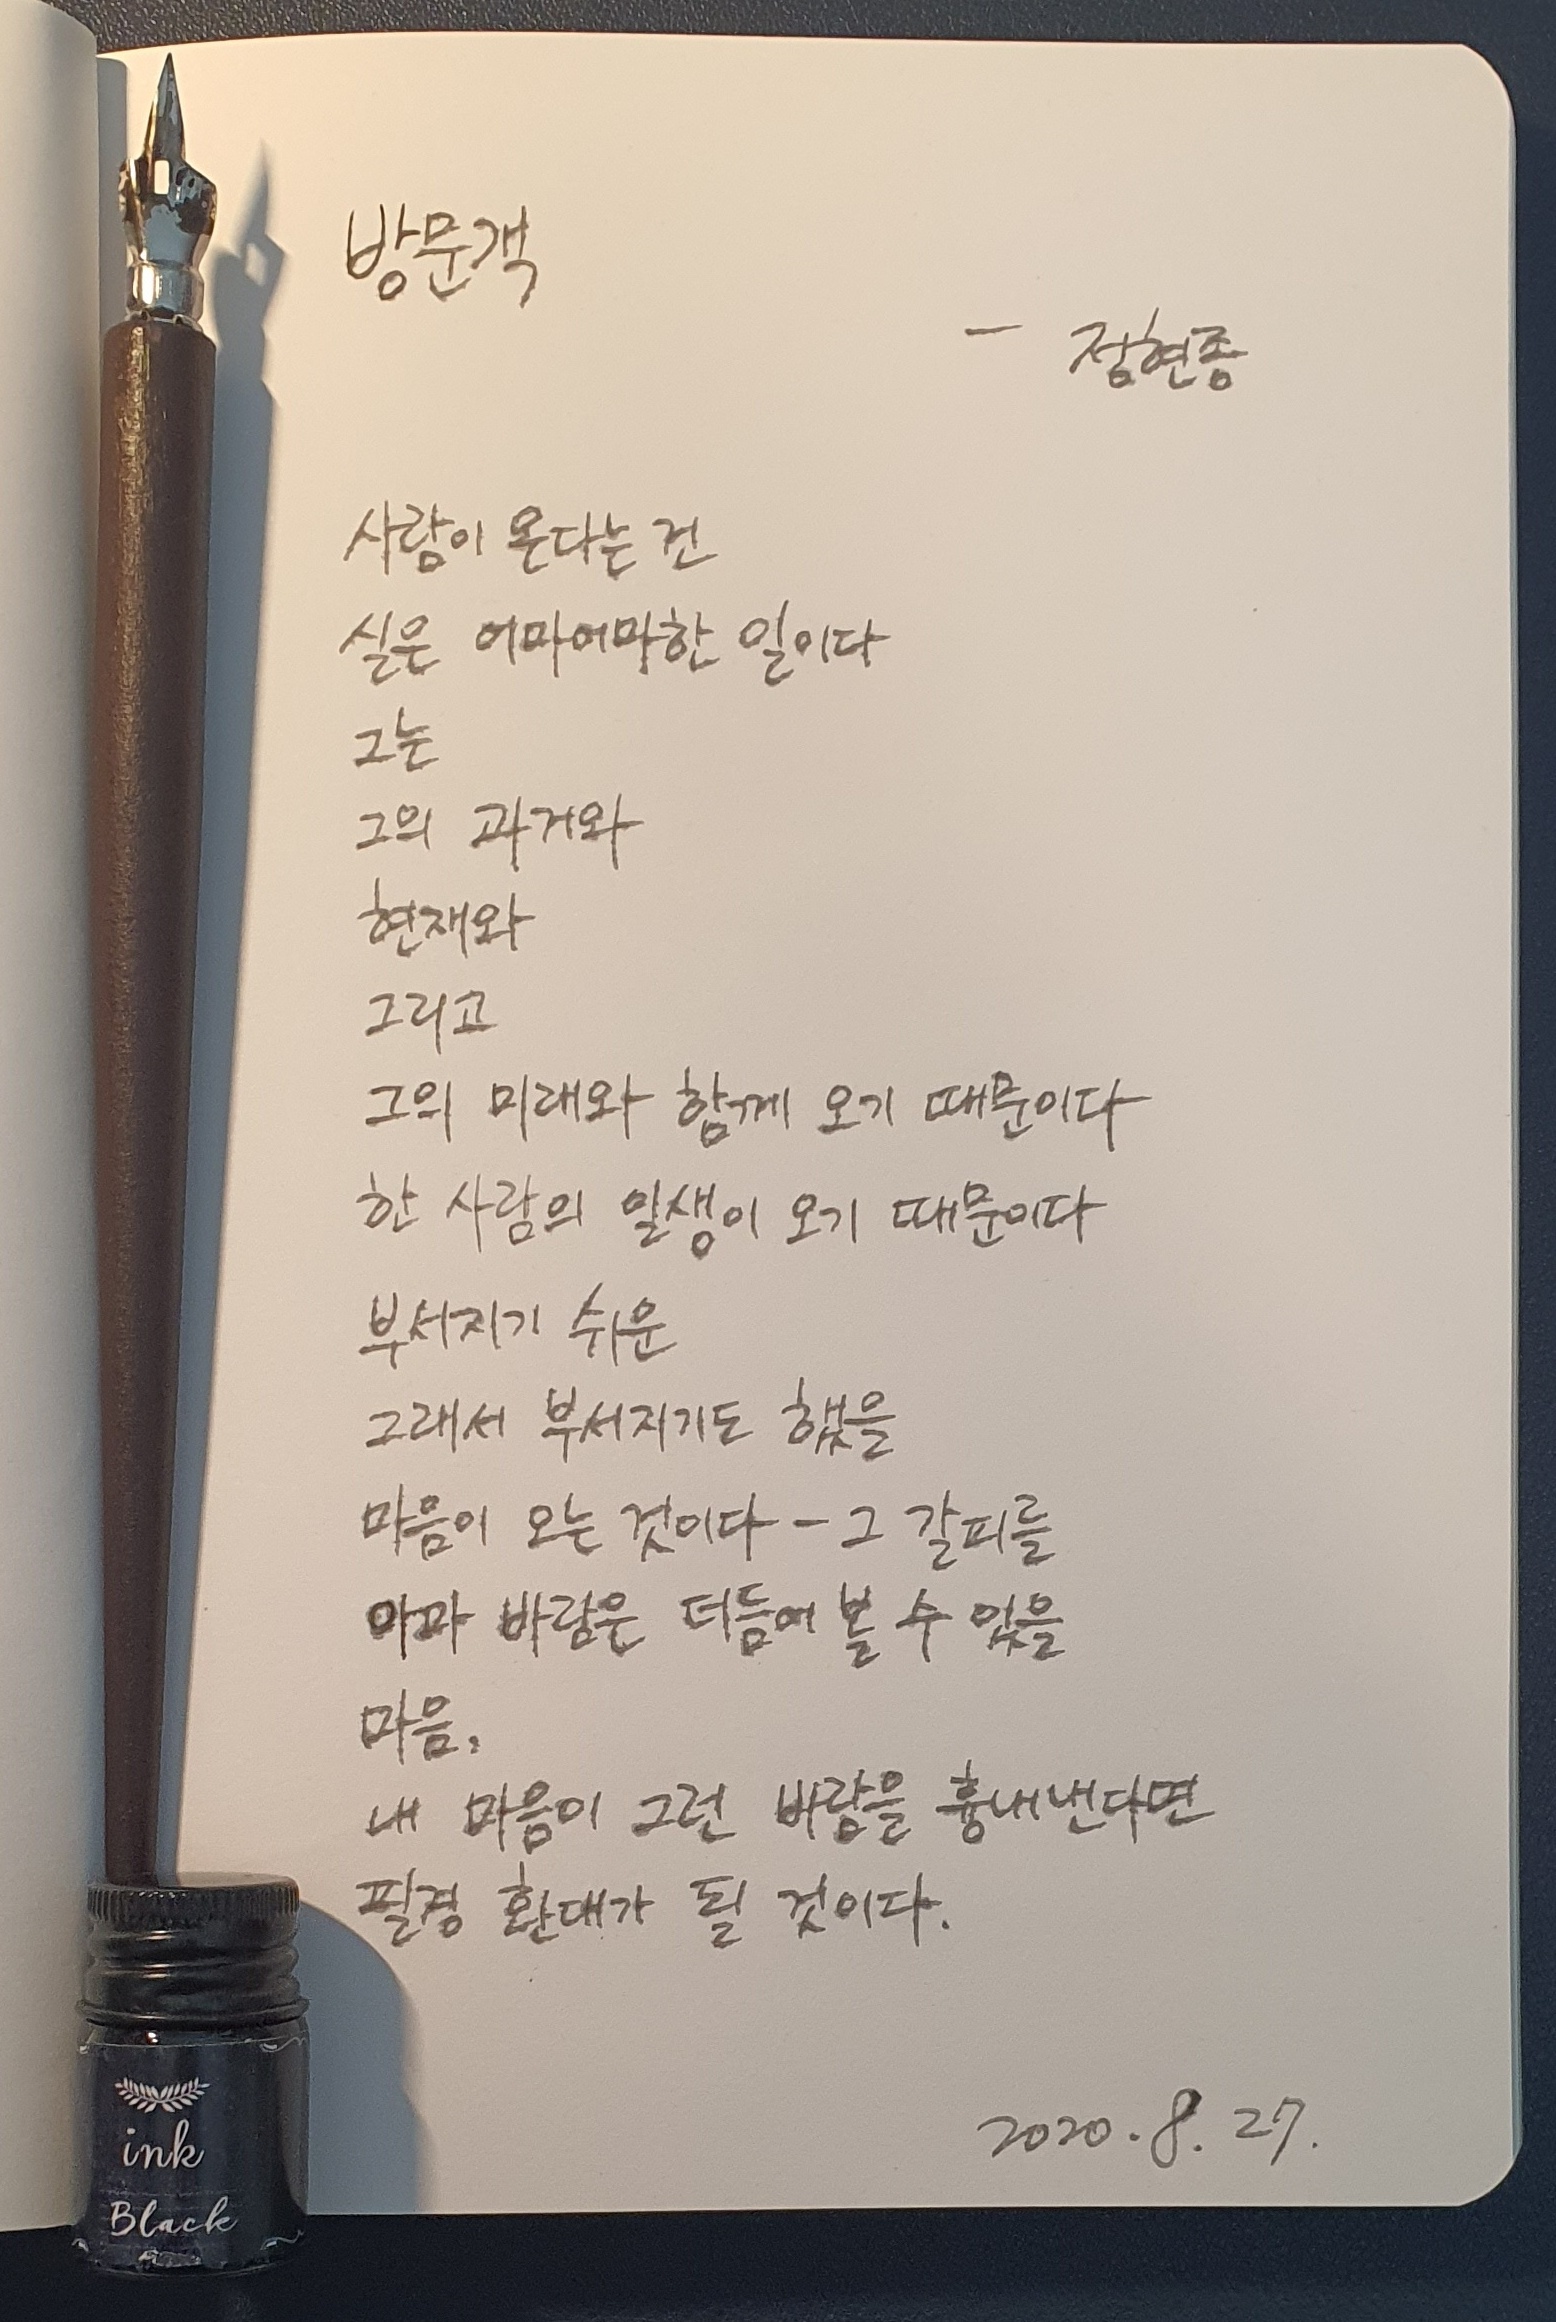 방문객
- 정현종
사람이 온다는 건
실은 어마어마한 일이다
그는
그의 과거와
현재와
그리고
그의 미래와 함께 오기 때문이다
한 사람의 일생이 오기 때문이다
부서지기 쉬운
그래서 부서지기도 했을
마음이 오는 것이다 - 그 갈피를
아마 바람은 더듬어 볼 수 있을
마음,
내 마음이 그런 바람을 흉내낸다면
필경 환대가 될 것이다.
2020. 8. 27.
ink
Black